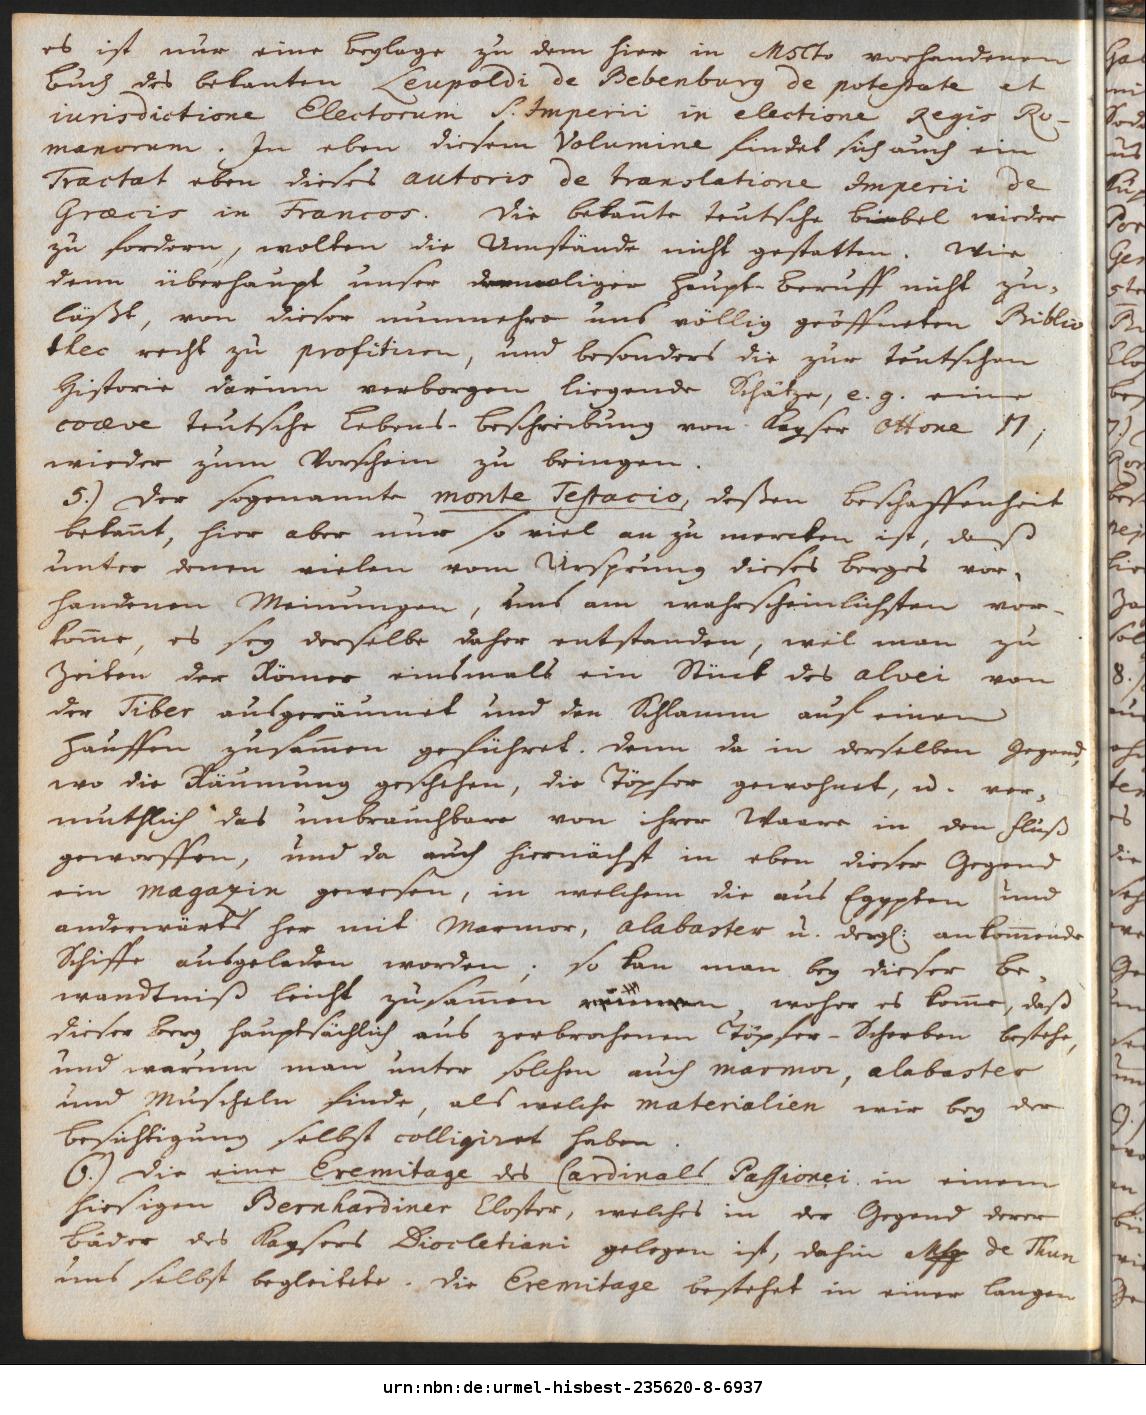 es ist nur eine beylage zu dem hier in Mscto vorhandenen
buch des bekanten Leupoldi de Bebenburg de potestate et
iurisdictione Electorum S. Imperii in electione Regis Ro-
manorum. In eben diesem Volumine findet sich auch ein
Tractat eben dieses autoris de translatione Imperii de
Græcis in Francos. Die bekante teutsche biebel wieder
zu fordern, wolten die Umstände nicht gestatten. Wie
denn überhaupt unser dermaliger Haupt-Beruff nicht zu-
läßt, von dieser nunmehro uns völlig geöffneten Biblio
thec recht zu profitiren, und besonders die zur teutschen
Historie darinn verborgen liegende Schätze, e. g. eine
coæve teutsche Lebens-beschreibung von Kayser Ottone II,
wieder zum Vorschein zu bringen.
5.) Der sogenannte monte Testacio, deßen beschaffenheit
bekant, hier aber nur so viel an zu mercken ist, daß
unter denen vielen vom Ursprung dieses berges vor-
handenen Meinungen, uns am wahrscheinlichsten vor-
kome, es sey derselbe daher entstanden, weil man zu
Zeiten der Römer einsmals ein Stück des alvei von
der Tiber ausgeräumet und den Schlamm auf einen
Hauffen zusamen geführet. Denn da in derselben Gegend,
wo die Räumung geschehen, die Töpfer gewohnet, u. ver-
muthlich das unbrauchbare von ihrer Waare in den Fluß
geworffen, und da auch hiernächst in eben dieser Gegend
ein magazin gewesen, in welchem die aus Egypten und
anderwärts her mit Marmor, alabaster u. dergl: ankomende
Schiffe ausgeladen worden; so kan man bey dieser Be-
wandtniß leicht zusamen räumen woher es kome, daß
dieser berg hauptsächlich aus zerbrochenen Töpfer-Scherben bestehe,
und warum man unter solchen auch marmor, alabaster
und Muscheln finde, als welche materialien wir bey der
besichtigung selbst colligiret haben.
6.) Die eine Eremitage des Cardinals Passionei in einem
hiesigen Bernhardiner Closter, welches in der Gegend derer
Bäder des Kaysers Diocletiani gelegen ist, dahin Msgr de Thun
uns selbst begleitete. Die Eremitage bestehet in einer langen
urn:nbn:de:urmel-hisbest-235620-8-6937